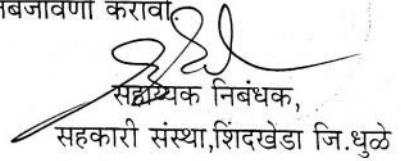 बजावणी करावी.
सहाय्यक निबंधक,
सहकारी संस्था,शिंदखेडा जि.धुळे